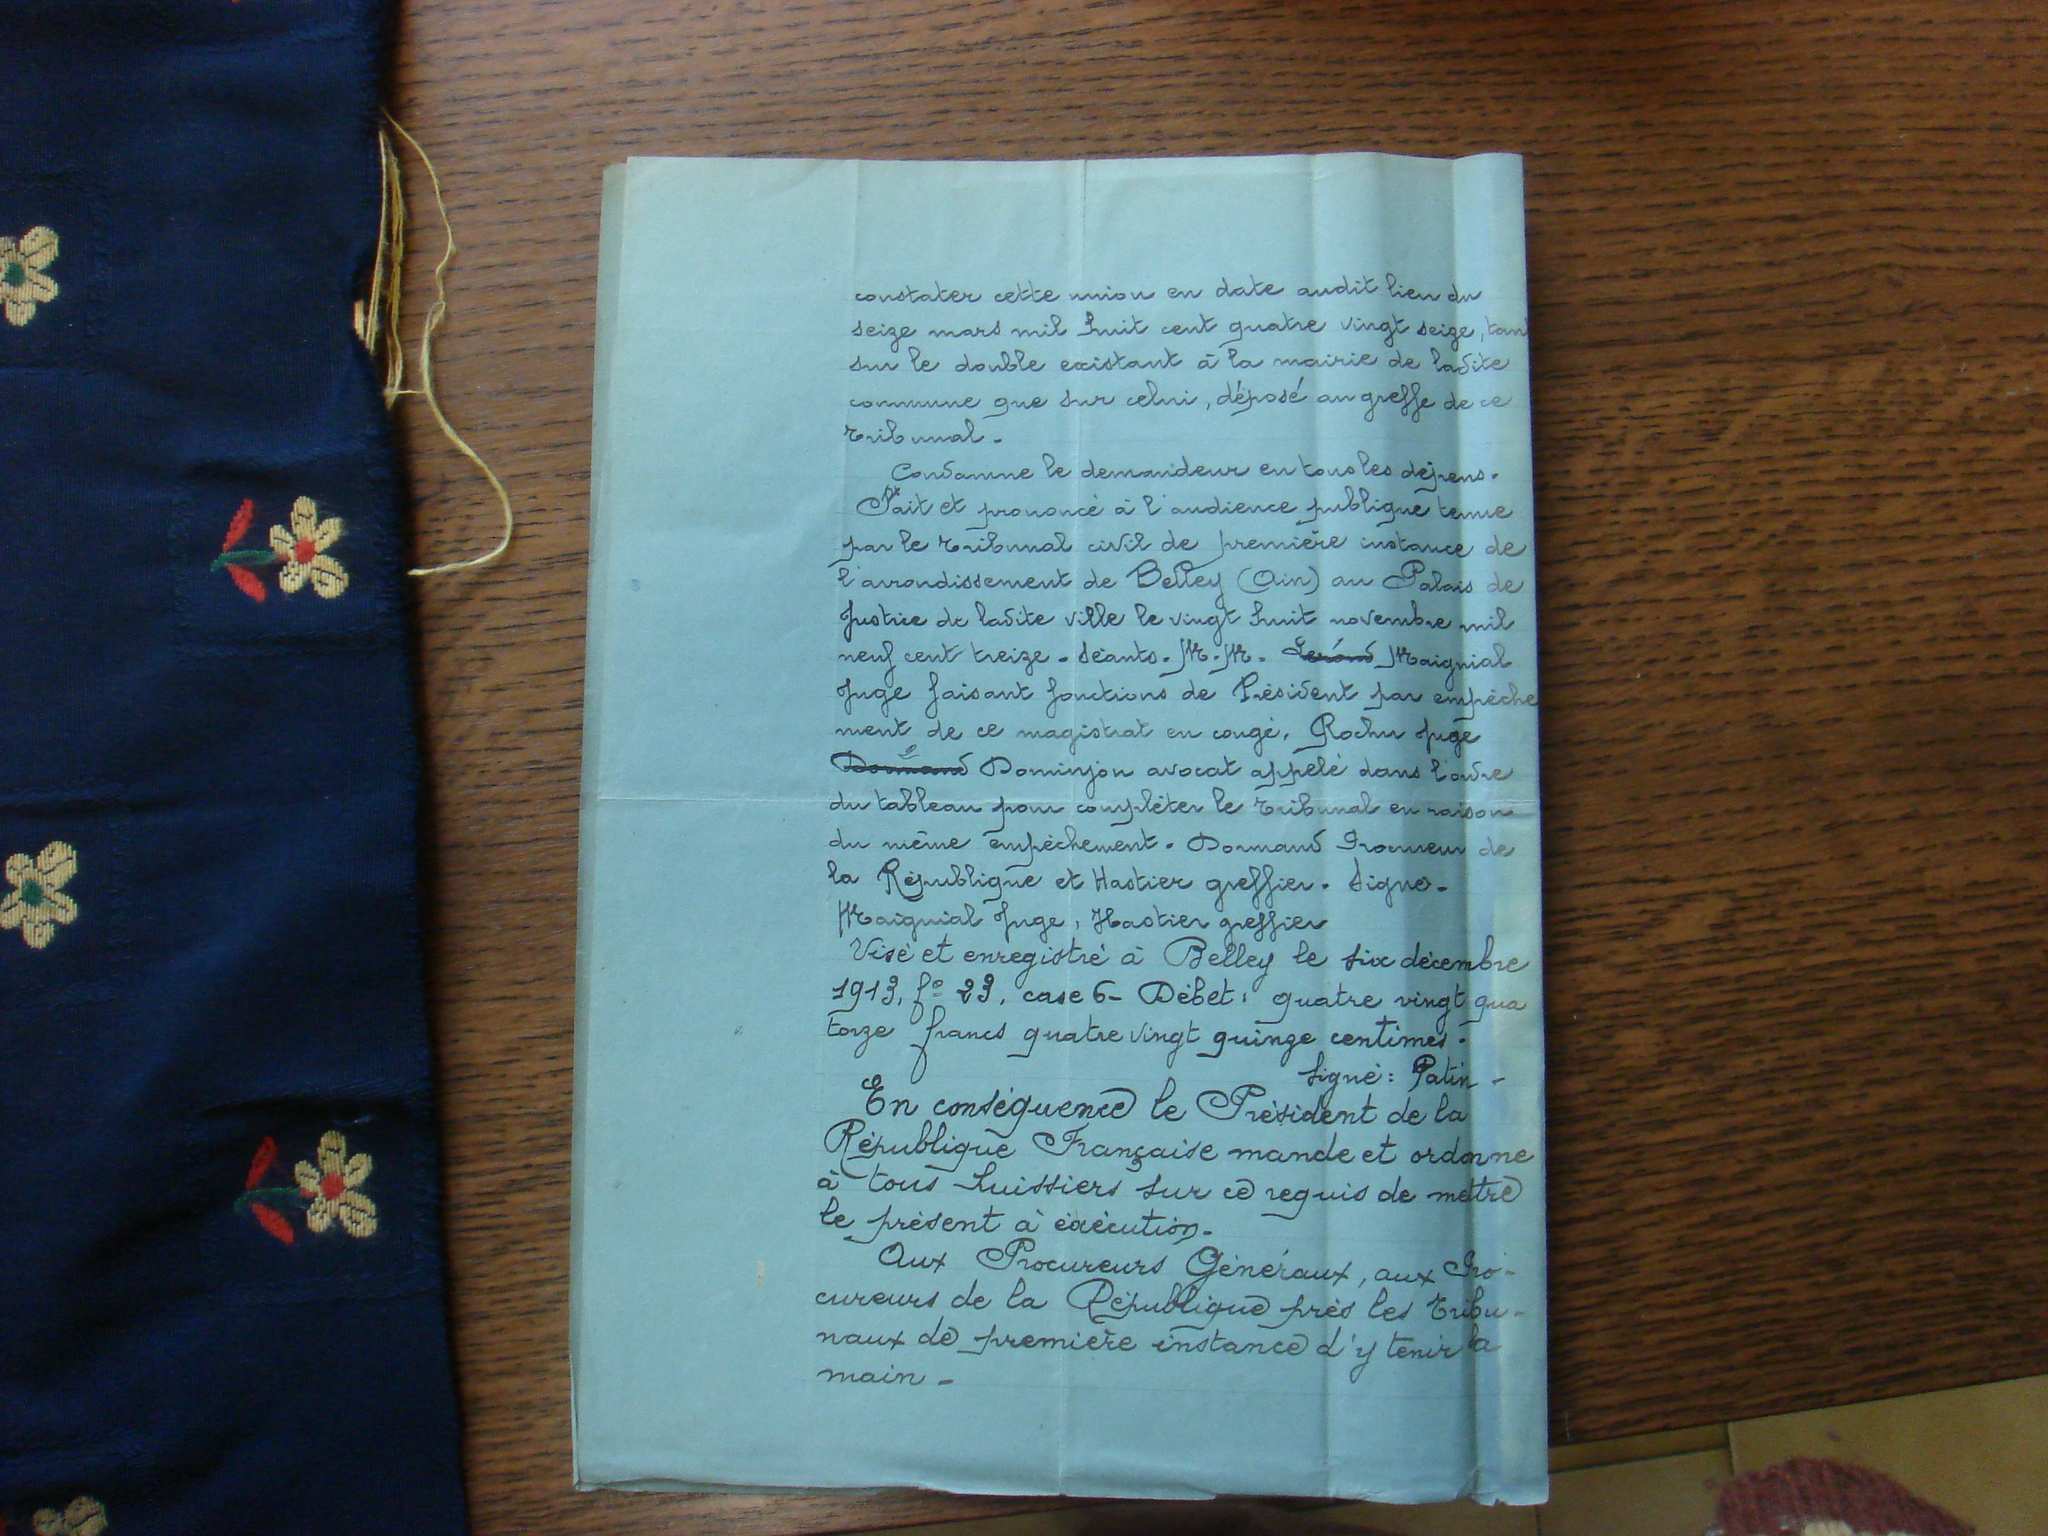 constater cette union en date audit lieu du
seize mars mil huit cent quatre vingt seize, tant
sur le double existant à la mairie de ladite
commune que sur celui, déposé au greffe de ce
Tribunal.
Condamne le demandeur en tous les dépens.
Fait et prononcé à l'audience publique tenue
par le Tribunal civil de première instance de
l'arrondissement de Belley (Ain) au Palais de
Justice de ladite ville le vingt huit novembre mil
neuf cent treize. Séants. M.M. Maignial
Juge faisant fonctions de Président par empêche
ment de ce magistrat en congé, Rocher Juge
Dominjon avocat appelé dans l'ordre
du tableau pour compléter le Tribunal en raison
du même empêchement. Dormand Procureur de
la République et Hastier greffier. Signé.
Maignial Juge, Hastier greffier
Visé et enregistré à Belley le six décembre
1913, f° 23, case 6 - Débet: quatre vingt qua
torze francs quatre vingt quinze centimes.
Signé: Patin -
En conséquence le Président de la
République Française mande et ordonne
à tous huissiers sur ce requis de mettre
le présent à éxécution.
Aux Procureurs Généraux, aux Pro-
cureurs de la République près les Tribu-
naux de première instance d'y tenir la
main -